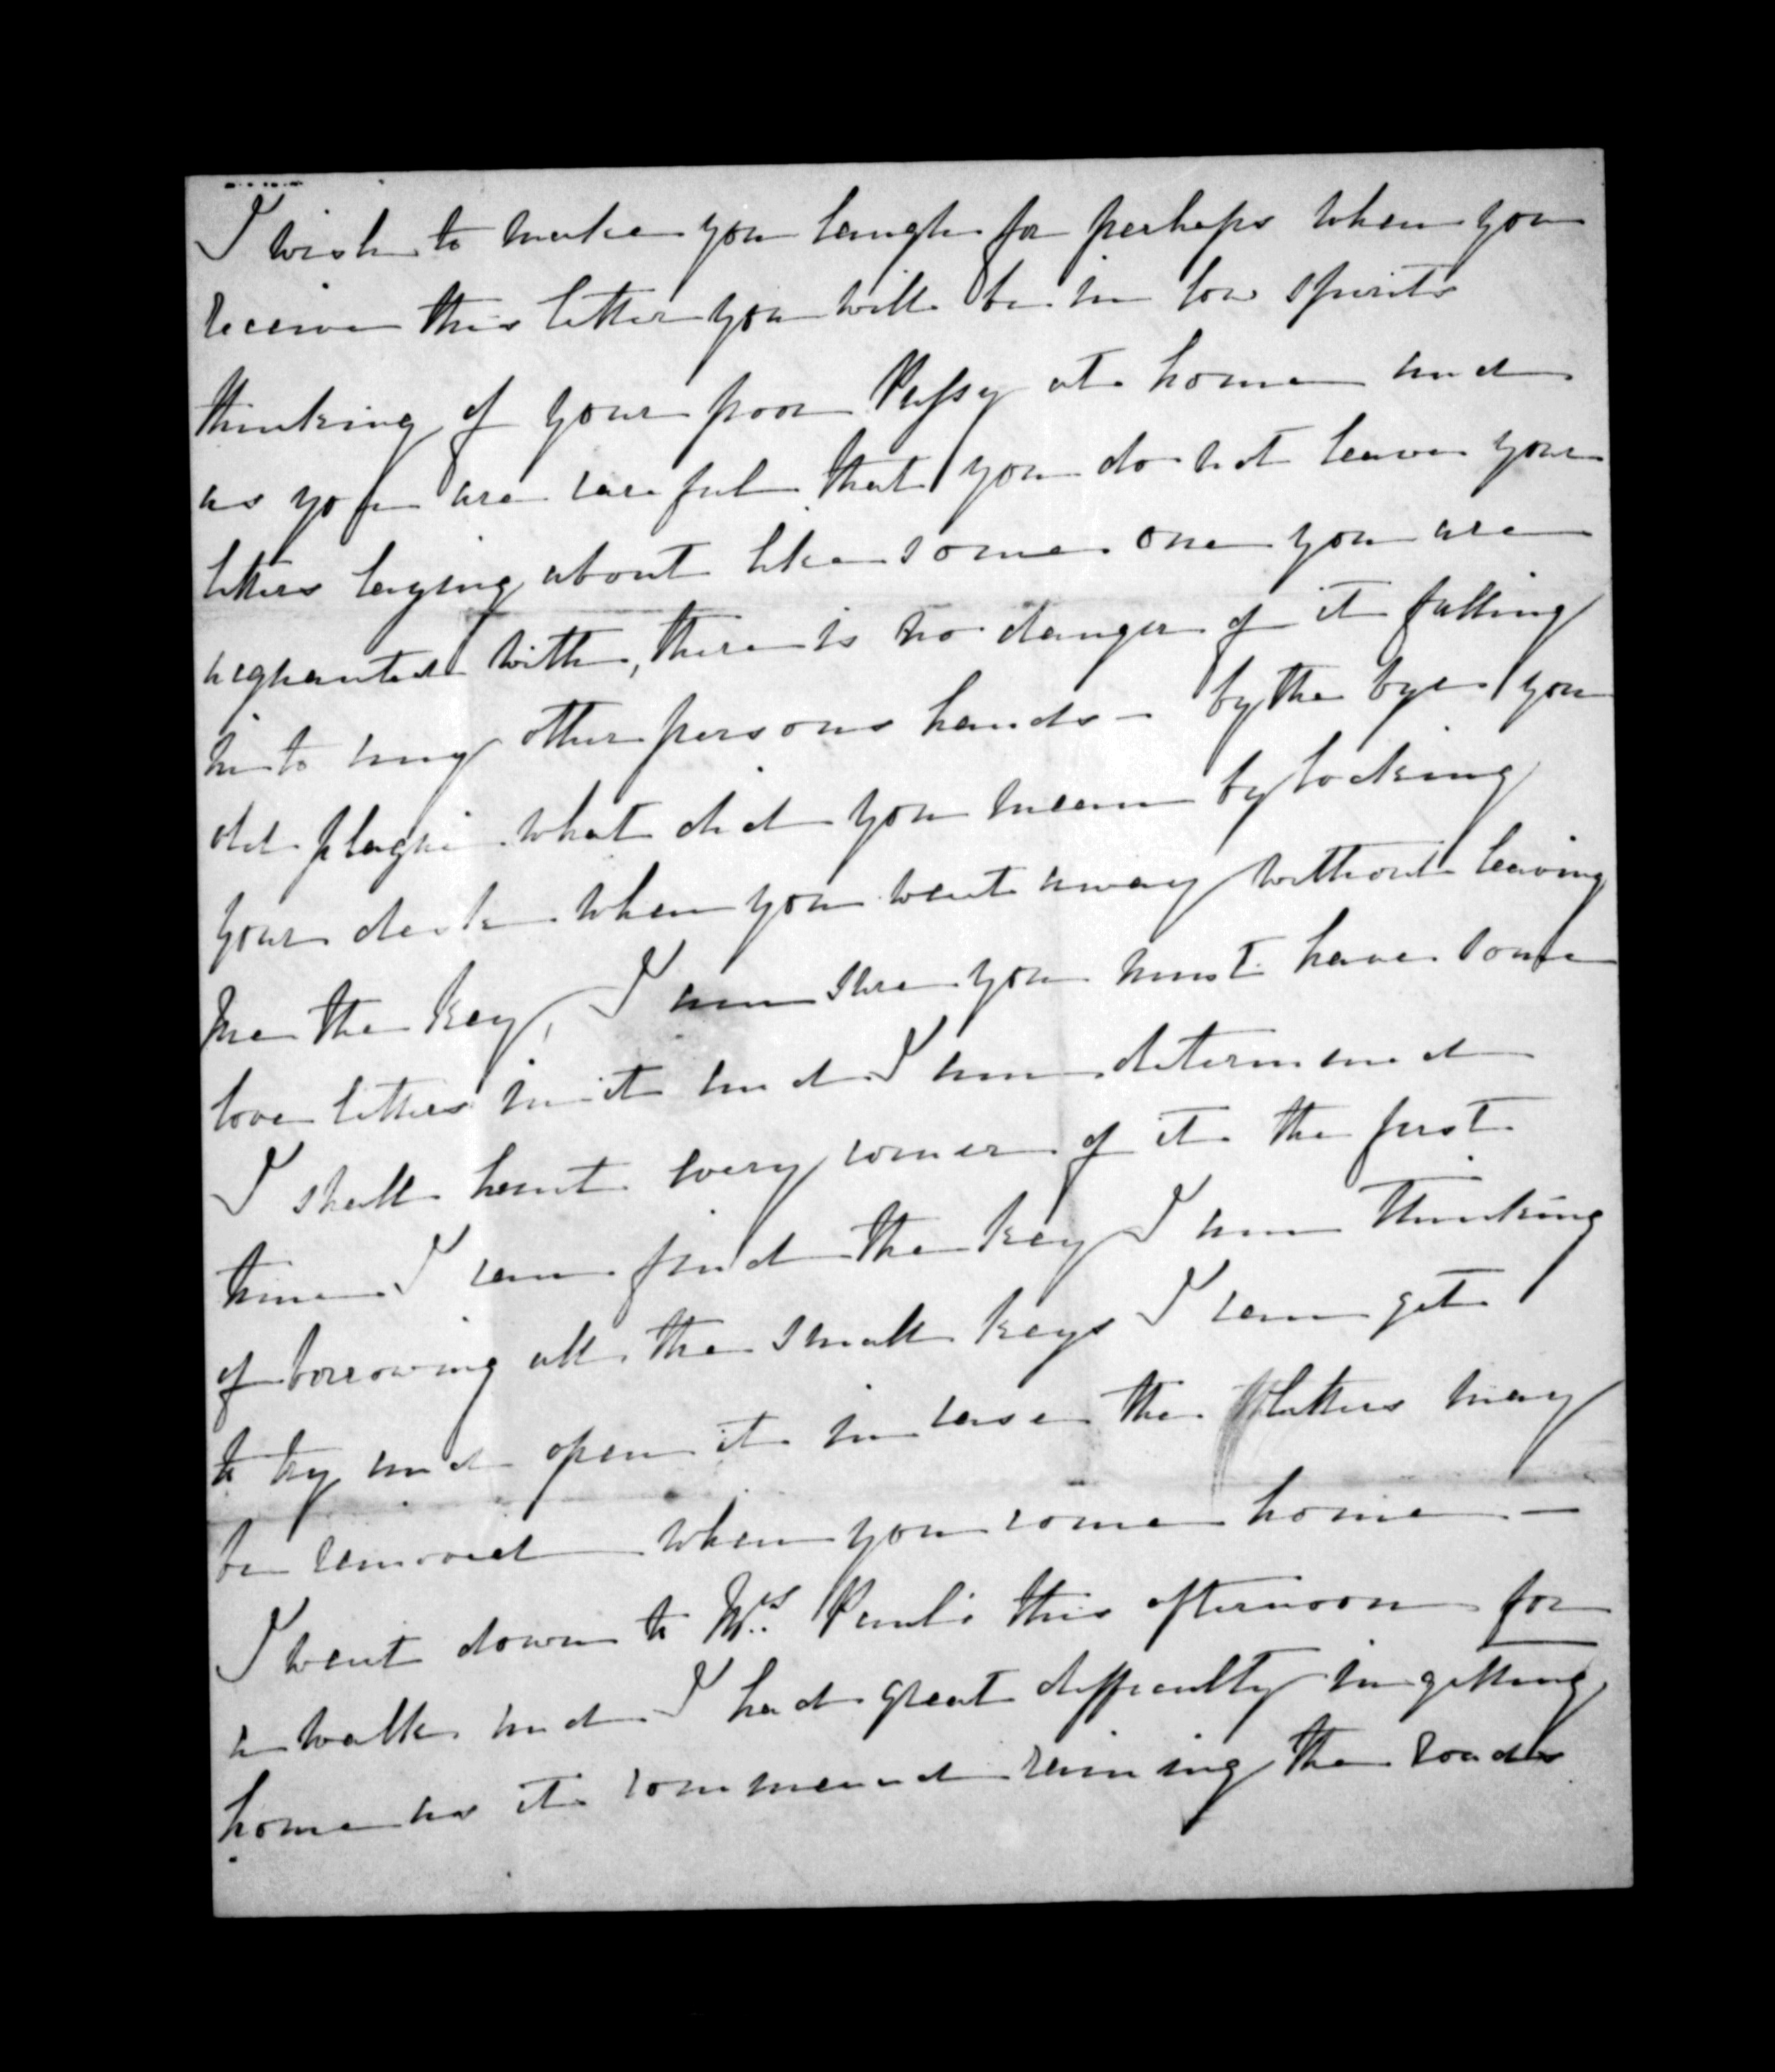 I wish to make you laugh for perhaps when you
receive this letter you will be in low spirits
thinking of your poor Pussy at home and
as you are careful that you do not leave your
letters laying about like some one you are
acquanted with, there is no danger of it falling
into any other persons hands - by the bye you
old plague what did you mean by locking
your desk when you went away without leaving
me the key, I am sure you must have some
love letters in it and I am determined
I shall hunt every corner of it the first
time I can find the key I am thinking
of borrowing all the small keys I can get
to try and open it in case the letters may
be removed when you come home -
I went down to Mrs. this afternoon for
a walk and I had great difficulty in getting
home as it commenced raining the roads